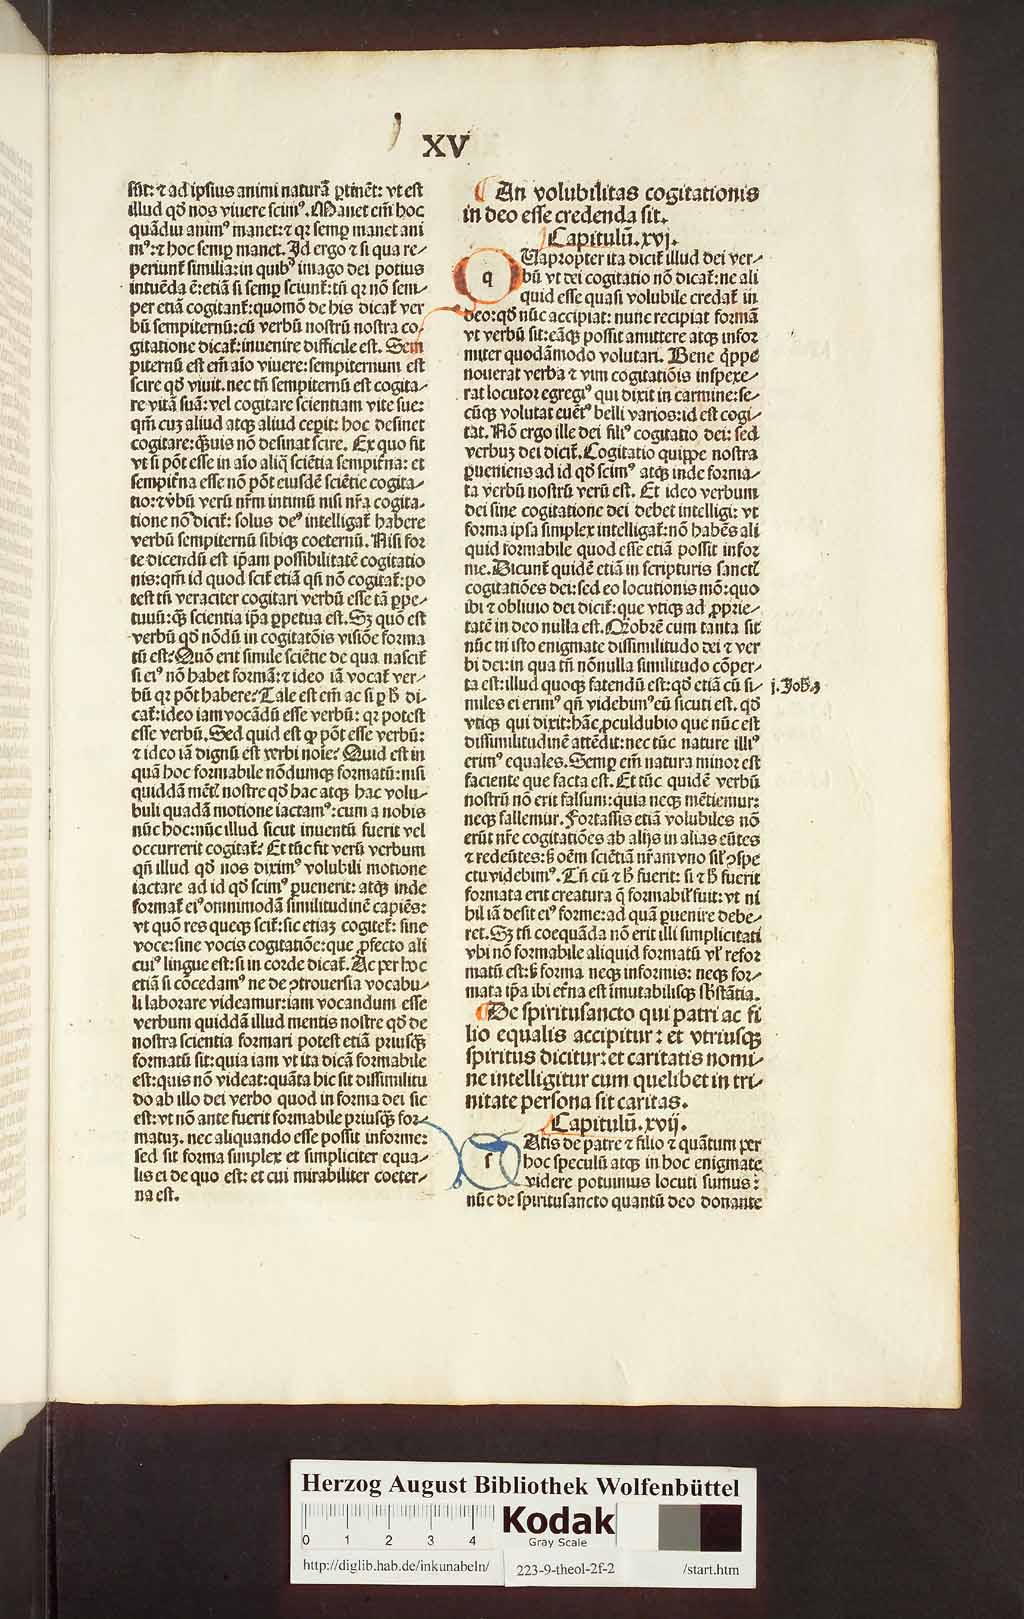 XV
sūt: ⁊ ad ipsius animi naturā ꝑtinēt: vt est
illud qd̄ nos viuere scimꝰ. Manet em̄ hoc
quādiu animꝰ manet: ⁊ qꝛ semꝑ manet ani
mꝰ: ⁊ hoc semꝑ manet. Id ergo ⁊ si qua re⸗
periunt̄ similia: in quibꝰ imago dei potius
intuēda ē: etiā si semꝑ sciunt̄: tn̄ qꝛ nō sem⸗
per etiā cogitant̄: quomō de his dicat̄ ver
bū sempiternū: cū verbū nostrū nostra co⸗
gitatione dicat̄: inuenire difficile est. Sem
piternū est em̄ aīo viuere: sempiternum est
scire qd̄ viuit. nec tn̄ sempiternū est cogita⸗
re vitā suā: vel cogitare scientiam vite sue:
qm̄ cuꝫ aliud atqꝫ aliud ceꝑit: hoc desinet
cogitare: qꝫuis nō desinat scire. Ex quo fit
vt si pōt esse in aīo aliq̄ sciētia sempit̄na: et
sempit̄na esse nō pōt eiusdē sciētie cogita⸗
tio: ⁊ v̄bū verū nr̄m intimū nisi nr̄a cogita⸗
tione nō dicit̄: solus deꝰ intelligat̄ habere
verbū sempiternū sibiqꝫ coeternū. Nisi for
te dicendū est ip̄am possibilitatē cogitatio
nis: qm̄ id quod scit̄ etiā qn̄ nō cogitat̄: po
test tn̄ veraciter cogitari verbū esse tā ꝑpe⸗
tuuū: qꝫ scientia ip̄a ꝑpetua est. Sꝫ quō est
verbū qd̄ nōdū in cogitatōis visiōe forma
tū est? Quō erit simile sciētie de qua nascit̄
si eiꝰ nō habet formā: ⁊ ideo iā vocat̄ ver⸗
bū qꝛ pōt habere? Tale est em̄ ac si ꝑ h̄ di⸗
cat̄: ideo iam vocādū esse verbū: qꝛ potest
esse verbū. Sed quid est qꝙ pōt esse verbū:
⁊ ideo iā dignū est verbi noīe? Quid est in
quā hoc formabile nōdumqꝫ formatū: nisi
quiddā mēt̄ nostre qd̄ hac atqꝫ hac volu⸗
buli quadā motione iactamꝰ: cum a nobis
nūc hoc: nūc illud sicut inuentū fuerit vel
occurrerit cogitat̄? Et tūc fit verū verbum
qn̄ illud qd̄ nos diximꝰ volubili motione
iactare ad id qd̄ scimꝰ ꝑuenerit: atqꝫ inde
format̄ eiꝰ omnimodā similitudinē capiēs:
vt quō res queqꝫ scit̄: sic etiaꝫ cogitet̄: sine
voce: sine vocis cogitatiōe: que ꝓfecto ali
cuiꝰ lingue est: si in corde dicat̄. Ac per hoc
etiā si cōcedamꝰ ne de ꝯtrouersia vocabu⸗
li laborare videamur: iam vocandum esse
verbum quiddā illud mentis nostre qd̄ de
nostra scientia formari potest etiā priusqꝫ
formatū sit: quia iam vt ita dicā formabile
est: quis nō videat: quāta hic sit dissimilitu
do ab illo dei verbo quod in forma dei sic
est: vt nō ante fuerit formabile priusqꝫ for⸗
matuꝫ. nec aliquando esse possit informe:
sed sit forma simplex et simpliciter equa⸗
lis ei de quo est: et cui mirabiliter coeter⸗
na est.
An volubilitas cogitationis
in deo esse credenda sit.
Capitulū. xvj.
q Uapropter ita dicit̄ illud dei ver⸗
bū vt dei cogitatio nō dicat̄: ne ali
quid esse quasi volubile credat̄ in
deo: qd̄ nūc accipiat: nunc recipiat formā
vt verbū sit: eāqꝫ possit amittere atqꝫ infor
miter quodāmodo volutari. Bene q̄ppe
nouerat verba ⁊ vim cogitatiōis inspexe⸗
rat locutor egregiꝰ qui dixit in carmine: se⸗
cūqꝫ volutat euētꝰ belli varios: id est cogi⸗
tat. Nō ergo ille dei filiꝰ cogitatio dei: sed
verbuꝫ dei dicit̄. Cogitatio quippe nostra
ꝑueniens ad id qd̄ scimꝰ atqꝫ inde forma⸗
ta verbū nostrū verū est. Et ideo verbum
dei sine cogitatione dei debet intelligi: vt
forma ipsa simplex intelligat̄: nō habēs ali
quid formabile quod esse etiā possit infor
me. Dicunt̄ quidē etiā in scripturis sanct̄
cogitatiōes dei: sed eo locutionis mō: quo
ibi ⁊ obliuio dei dicit̄: que vtiqꝫ ad ꝓprie⸗
tatē in deo nulla est. Qꝛobrē cum tanta sit
nūc in isto enigmate dissimilitudo dei ⁊ ver
bi dei: in qua tn̄ nōnulla similitudo cōper⸗
ta est: illud quoqꝫ fatendū est: qd̄ etiā cū si⸗
miles ei erimꝰ qn̄ videbimꝰ eū sicuti est. qd̄
vtiqꝫ qui dixit: hāc ꝓculdubio que nūc est
dissimilitudinē attēdit: nec tūc nature illiꝰ
erimꝰ equales. Semꝑ em̄ natura minor est
faciente que facta est. Et tūc quidē verbū
nostrū nō erit falsum: quia neqꝫ mētiemur:
neqꝫ fallemur. Fortassis etiā volubiles nō
erūt nr̄e cogitatiōes ab alijs in alias eūtes
⁊ redeūtes: sꝫ oēm sciētiā nr̄am vno sił ꝯspe
ctu videbimꝰ. Tn̄ cū ⁊ h̄ fuerit: si ⁊ h̄ fuerit
formata erit creatura q̄ formabił fuit: vt ni
hil iā desit eiꝰ forme: ad quā ꝑuenire debe⸗
ret. Sꝫ tn̄ coequāda nō erit illi simplicitati
vbi nō formabile aliquid formatū vł refor
matū est: sꝫ forma neqꝫ informis: neqꝫ for⸗
mata ip̄a ibi et̄na est īmutabilisqꝫ sb̄stātia.
De spiritusancto qui patri ac fi
lio equalis accipitur: et vtriusqꝫ
spiritus dicitur: et caritatis nomi⸗
ne intelligitur cum quelibet in tri⸗
nitate persona sit caritas.
Capitulū. xvij.
s Atis de patre ⁊ filio ⁊ quātum per
hoc speculū atqꝫ in hoc enigmate
videre potuimus locuti sumus:
nūc de spiritusancto quantū deo donante
j. Joh̄. 3
Herzog August Bibliothek Wolfenbüttel
0 1 2 3 4
Kodak
Gray Scale
http://diglib.hab.de/inkunabeln/ 223-9-theol-2f-2 /start.htm